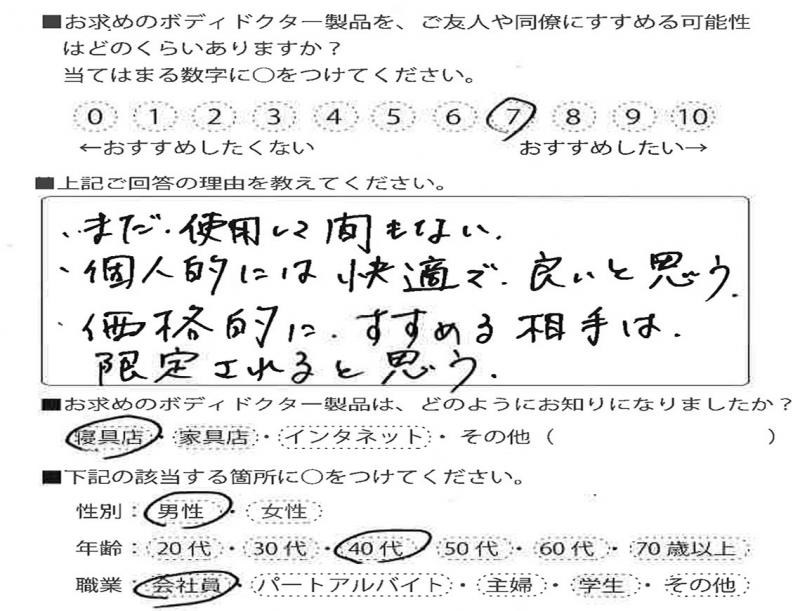 ■お求めのボディドクター製品を、ご友人や同僚にすすめる可能性
はどのくらいありますか？
当てはまる数字に○をつけてください。
0 1 2 3 4 5 6 7 8 9 10
←おすすめしたくない おすすめしたい→
■上記ご回答の理由を教えてください。
・まだ、使用して間もない.
・個人的には快適で、良いと思う.
・価格的に、すすめる相手は、
限定されると思う.
■お求めのボディドクター製品は、どのようにお知りになりましたか？
寝具店・家具店・インタネット・その他（ ）
■下記の該当する箇所に○をつけてください。
性別：男性・女性
年齢：20代・30代・40代・50代・60代・70歳以上
職業：会社員・パートアルバイト・主婦・学生・その他